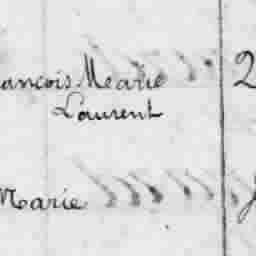 ançois Marie
Laurent
Marie